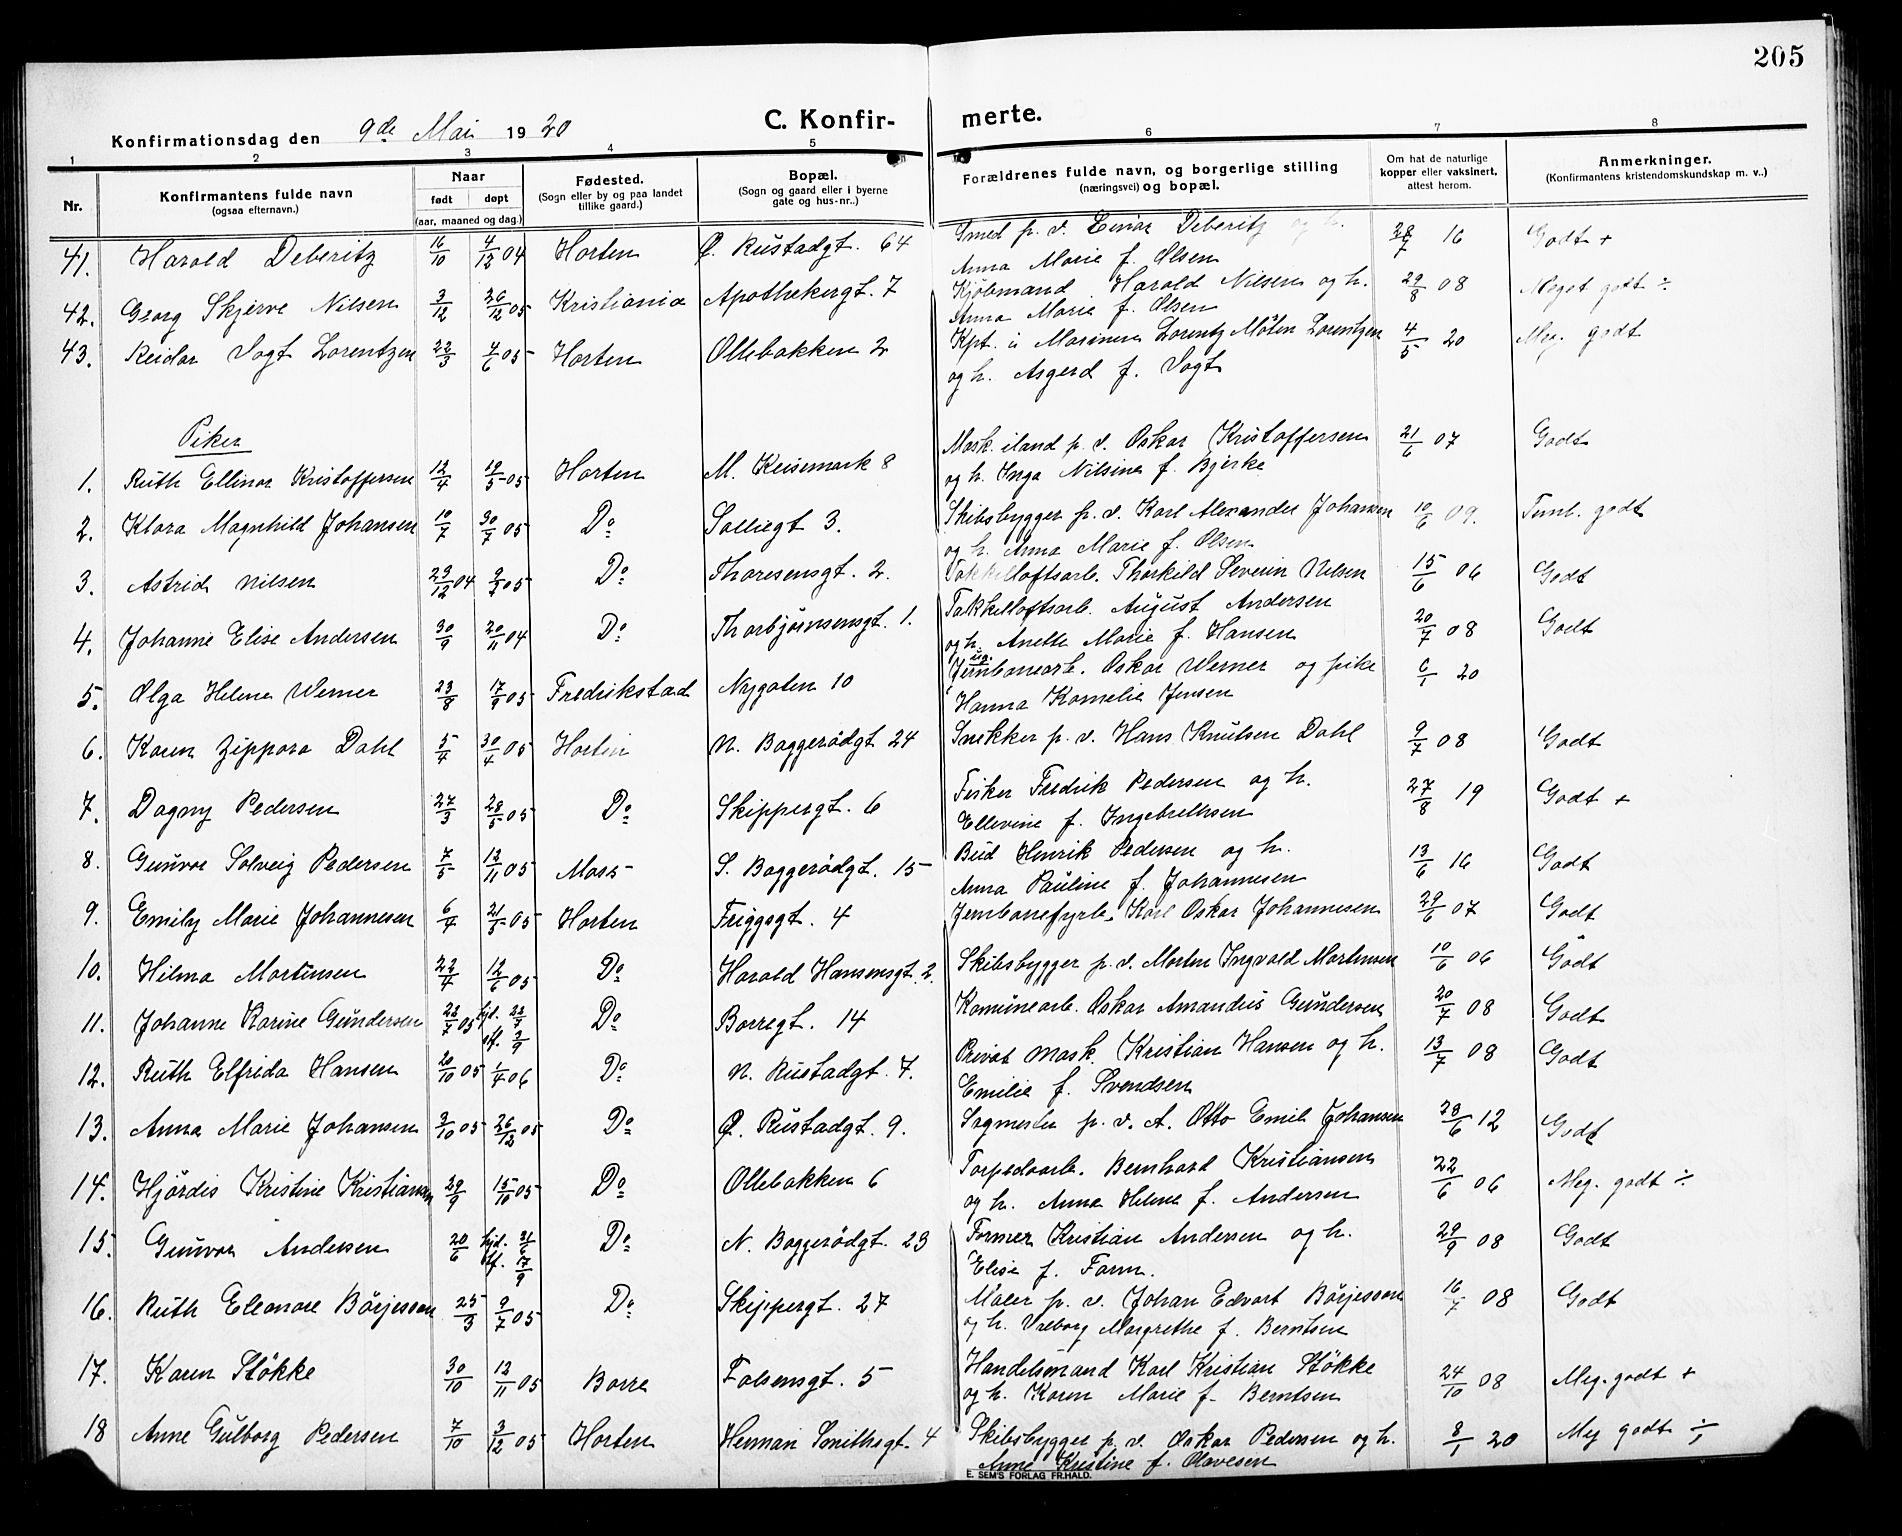 205
Konfirmationsdag den 9de Mai 1920 C. Konfir- merte.
1 2 3 4 5 6 7 8
Nr. Konfirmantens fulde navn (ogsaa efternavn.) Naar født døpt (aar, maaned og dag.) Fødested. (Sogn eller by og paa landet tillike gaard.) Bopæl. (Sogn og gaard eller i byerne gate og hus-nr..) Forældrenes fulde navn, og borgerlige stilling (næringsvei) og bopæl. Om hat de naturlige kopper eller vaksinert, attest herom. Anmerkninger. (Konfirmantens kristendomskundskap m. v..)
41. Harald Deberitz 16/10 4/12 04 Horten Ø. Rustadgt. 64 Smed p. v. Einar Deberitz og h. 28/7 16 Godt +
Anna Marie f. Olsen
42. Georg Skjerve Nilsen 3/12 26/12 05 Kristiania Apothekergt. 7 Kjøbmand Harald Nilsen og h. 29/8 08 Meget godt ÷
Anna Marie f. Olsen
43. Reidar Vogt Lorentzen 22/3 4/6 05 Horten Ollebakken 2 Kpt. i Marinen Lorentz Lorentzen 4/5 20 Meg. godt
og h. Asgerd f. Vogt
Piker
1. Ruth Ellinor Kristoffersen 12/4 19/5 05 Horten M. Keisemark 8 Mask. iland p. v. Oskar Kristoffersen 21/6 07 Godt
og h. Inga Nilsine f. Bjerke
2. Klara Magnhild Johansen 10/7 30/7 05 Do Solliegt 3. Skibsbygger p. v. Karl Alexander Johansen 10/6 09. Teml. godt
og h. Anna Marie f. Olsen
3. Astrid Nilsen 29/12 04 9/7 05 Do Thoresensgt. 2. Takkelloftsarb. Thorkild Severin Nilsen 15/6 06 Godt
4. Johanne Elise Andersen 30/9 20/11 04 Do Thorbjørnsensgt. 1. Takkelloftsarb. August Andersen 20/7 08 Godt
og h. Anette Marie f. Hansen
5. Olga Helene Werner 23/8 17/9 05 Fredrikstad Nygaten 10 Jernbanearb. Oskar Werner og pike 6/1 20
Hanna Kornelie Jensen
6. Karen Zippora Dahl 5/4 30/4 05 Horten N. Baggerødgt 24 Snekker p. v. Hans Knutsen Dahl 9/7 08 Godt
7. Dagny Pedersen 27/3 28/5 05 Do Skippergt. 6 Fisker Fredrik Pedersen og h. 27/8 19 Godt +
Ellevine f. Ingebrethsen
8. Gunvor Solveig Pedersen 7/5 12/11 05 Moss S. Baggerødgt. 15 Bud Henrik Pedersen og h. 13/6 16 Godt
Anna Pauline f. Johannesen
9. Emily Marie Johannesen 6/4 21/5 05 Horten Friggsgt. 4 Jernbanefyrb. Karl Oskar Johannesen 29/6 07 Godt
10. Hilma Martinsen 22/4 12/6 05 Do Harald Hansensgt. 2. Skibsbygger p. v. Morten Ingvald Mortensen 10/6 06 Godt
11. Johanne Karine Gundersen 22/7 05 hjd. 22/7 stf. 3/9 Do Borregt. 14 Komunearb. Oskar Amandus Gundersen 20/7 08 Godt
12. Ruth Elfrida Hansen 20/10 05 1/4 06 Do N. Rustadgt. 7. Privat mask. Kristian Hansen og h. 13/7 08 Godt
Emilie f. Svendsen
13. Anna Marie Johansen 3/10 05 26/12 05 Do Ø. Rustadgt. 9. Sagmester p. v. A. Otto Emil Johansen 28/6 12 Godt
14. Hjørdis Kristine Kristiansen 29/9 15/10 05 Do Ollebakken 6 Torpedoarb. Bernhard Kristiansen 22/6 06 Meg. godt ÷
og h. Anna Helene f. Andersen
15. Gunvor Andersen 20/6 hjd. 21/6 stf. 17/9 Do N. Baggerødgt. 23 Former Kristian Andersen og h. 29/9 08 Godt
Elise f. Farm.
16. Ruth Eleonore Børjesson 25/3 9/7 05 Do Skippergt. 27 Maler p. v. Johan Edvart Børjesson 16/7 08 Godt
og h. Valborg Margrethe f. Berntsen
17. Karen Støkke 30/10 12/11 05 Borre Falsensgt. 5 Handelsmand Karl Kristian Støkke 24/10 08 Meg. godt +
og h. Karen Marie f. Berntsen
18 Anne Gulborg Pedersen 7/10 3/12 05 Horten Herman Smithsgt. 4 Skibsbygger p. v. Oskar Pedersen og h. 8/1 20 Meg godt ÷
Anne Kristine f. Olavesen
E. SEM'S FORLAG FR.HALD.